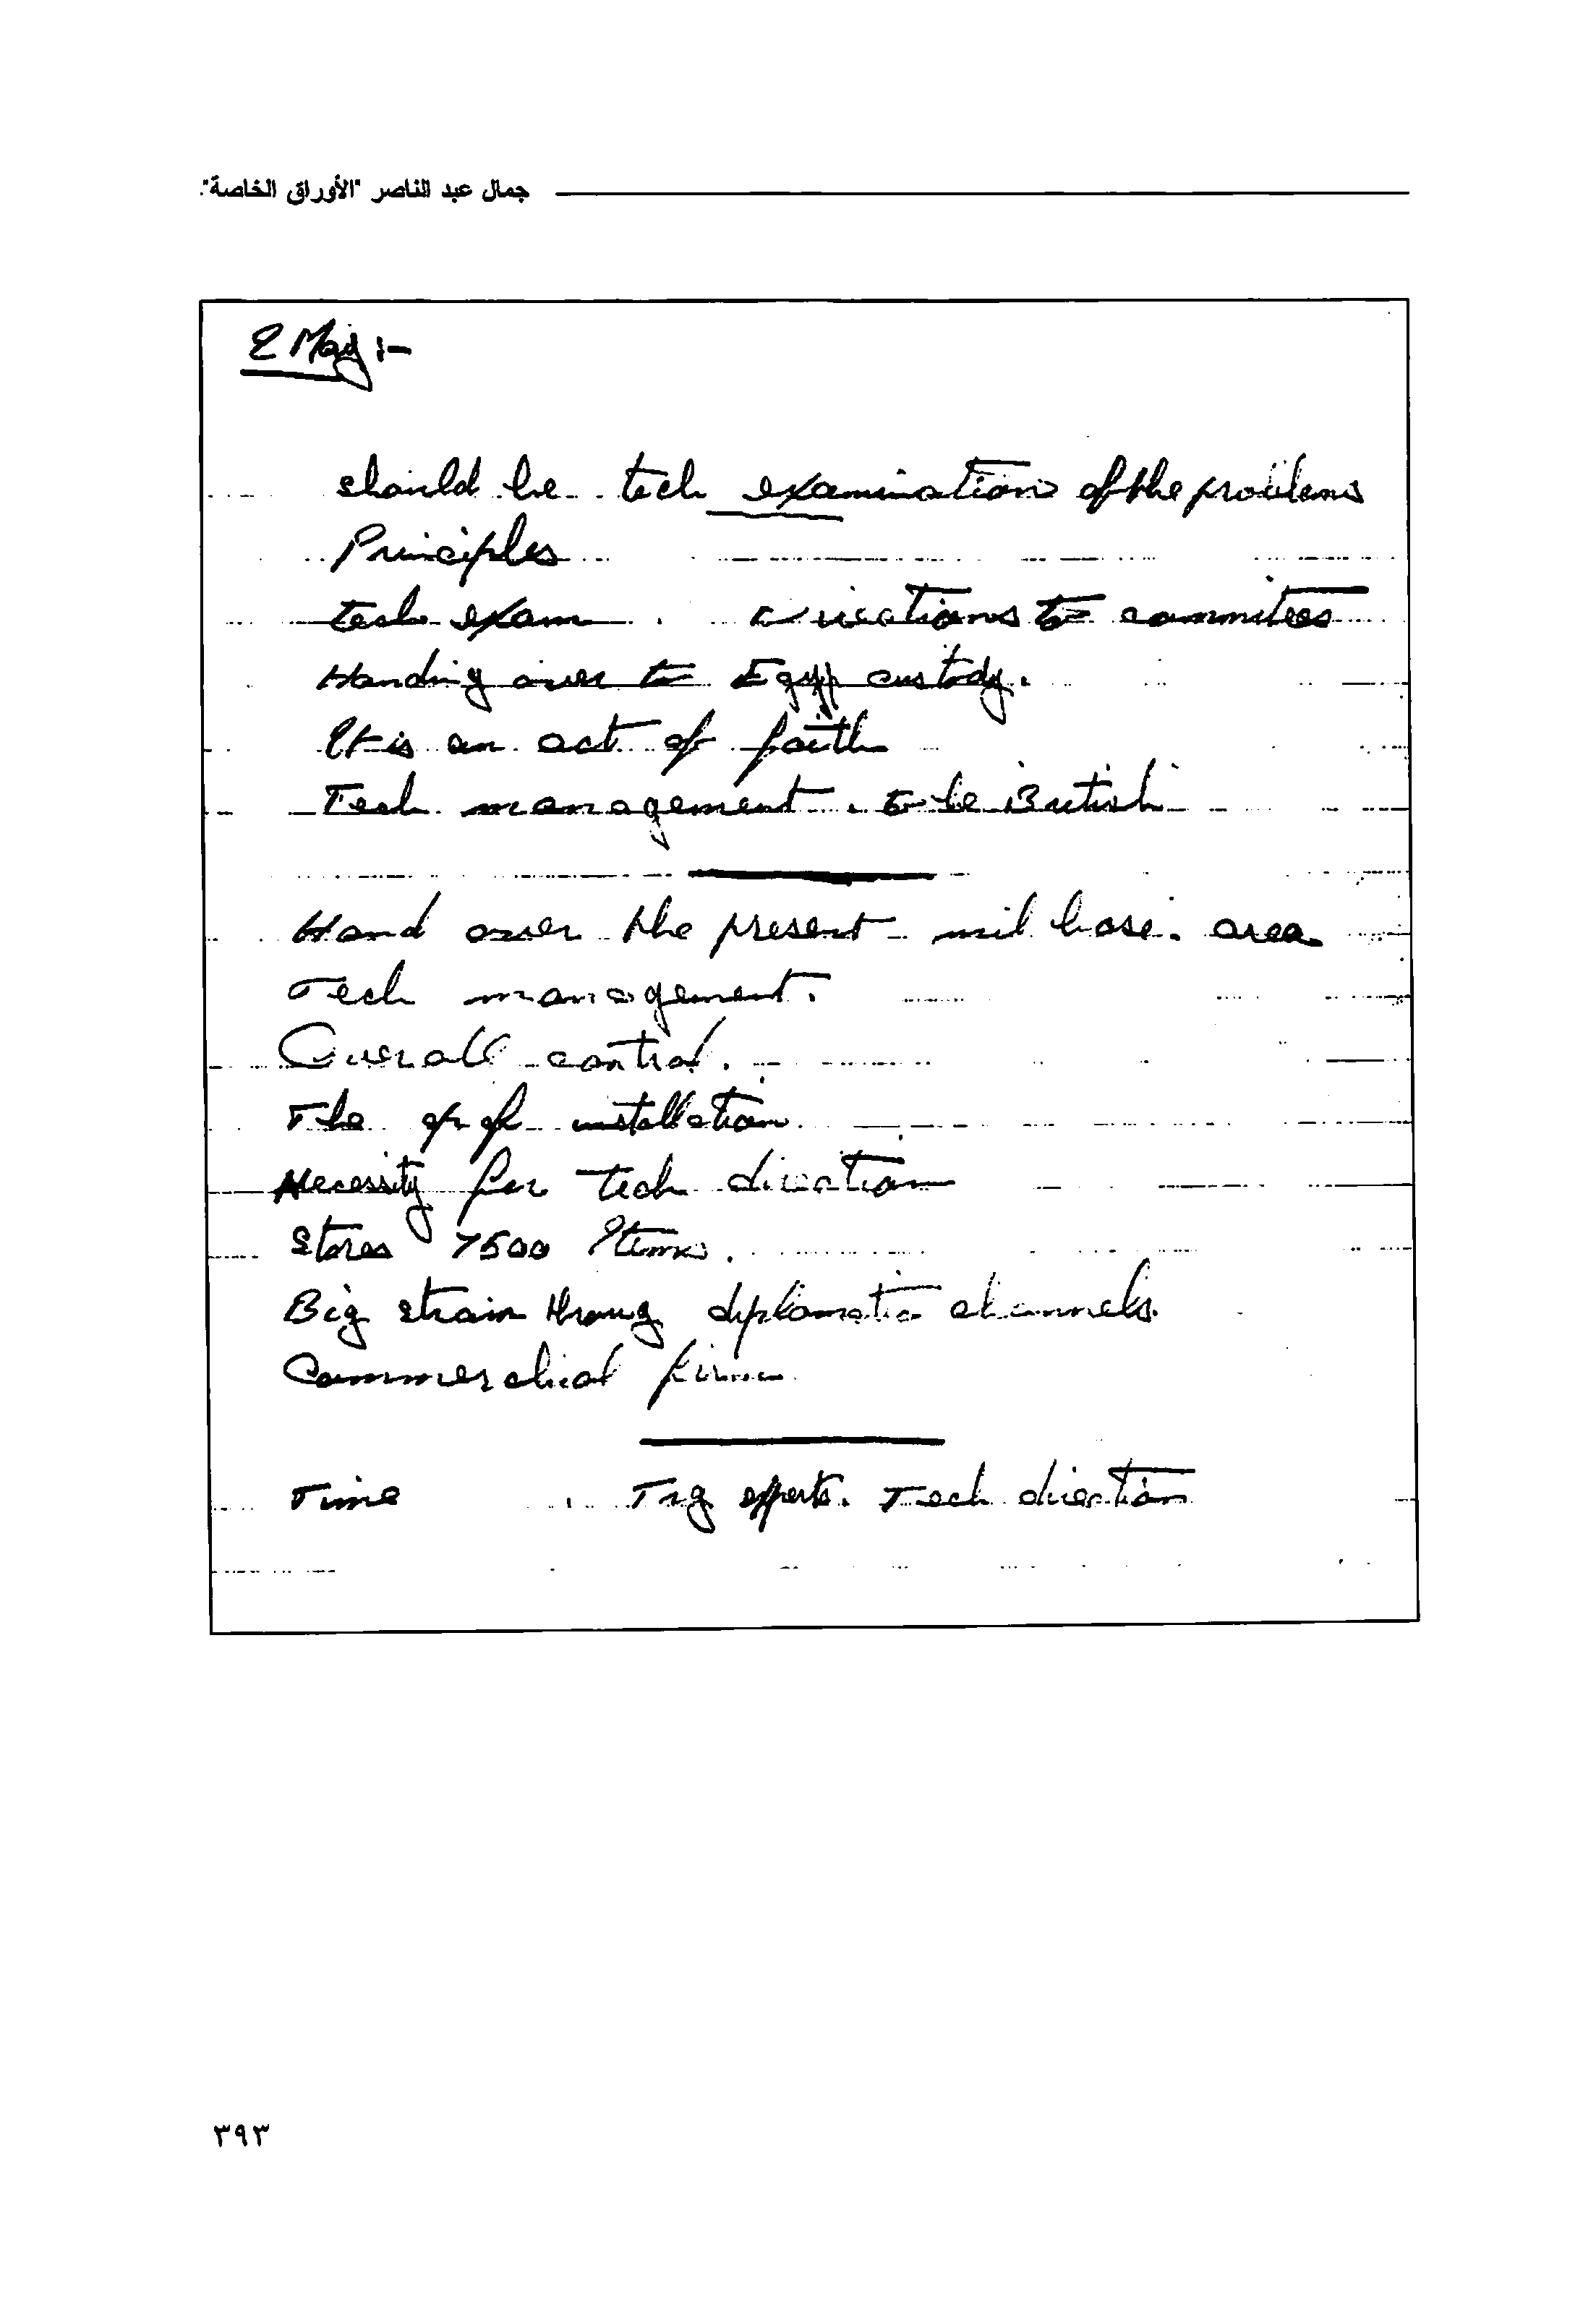 جمال عبد الناصر "الأوراق الخاصة".
2 May :-
should be tech examination of the problems
Principles
tech exam directions to committees
Handing over to Egyp custody.
It is an act of faith
Tech management. to be British
Hand over the present mil base. area.
Tech management.
Overall control.
The of installation
Necessity for tech direction
Stores 7500 Items.
Big strain throug diplomatic channels.
Commerchial firm
Time Trg experts. Tech direction
٣٩٣